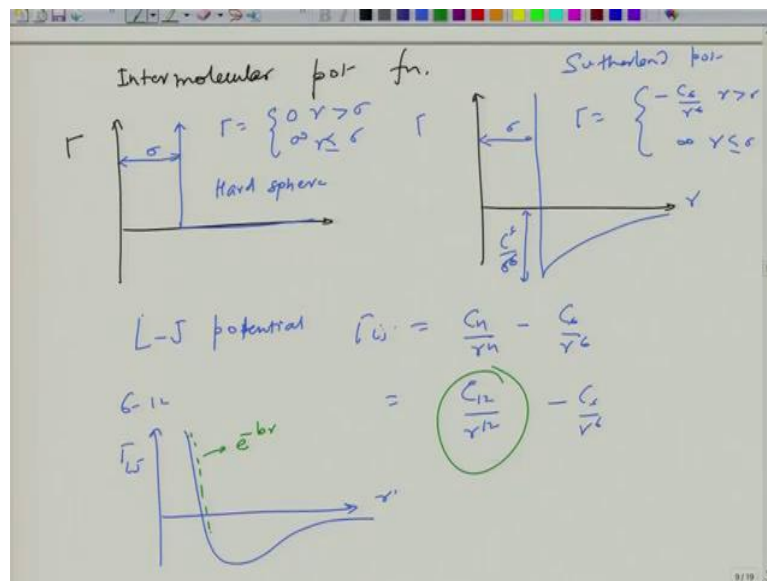 Intermolecular pot fn.
Sutherland pot
Γ
σ
Γ = { 0 r > σ
∞ r ≤ σ
Hard sphere
Γ
σ
Γ = { - C6/r^6 r > σ
∞ r ≤ σ
r
L-J potential Γij = Cn/r^n - C6/r^6
6-12 = C12/r^12 - C6/r^6
Γij
e^-br
r
9/19